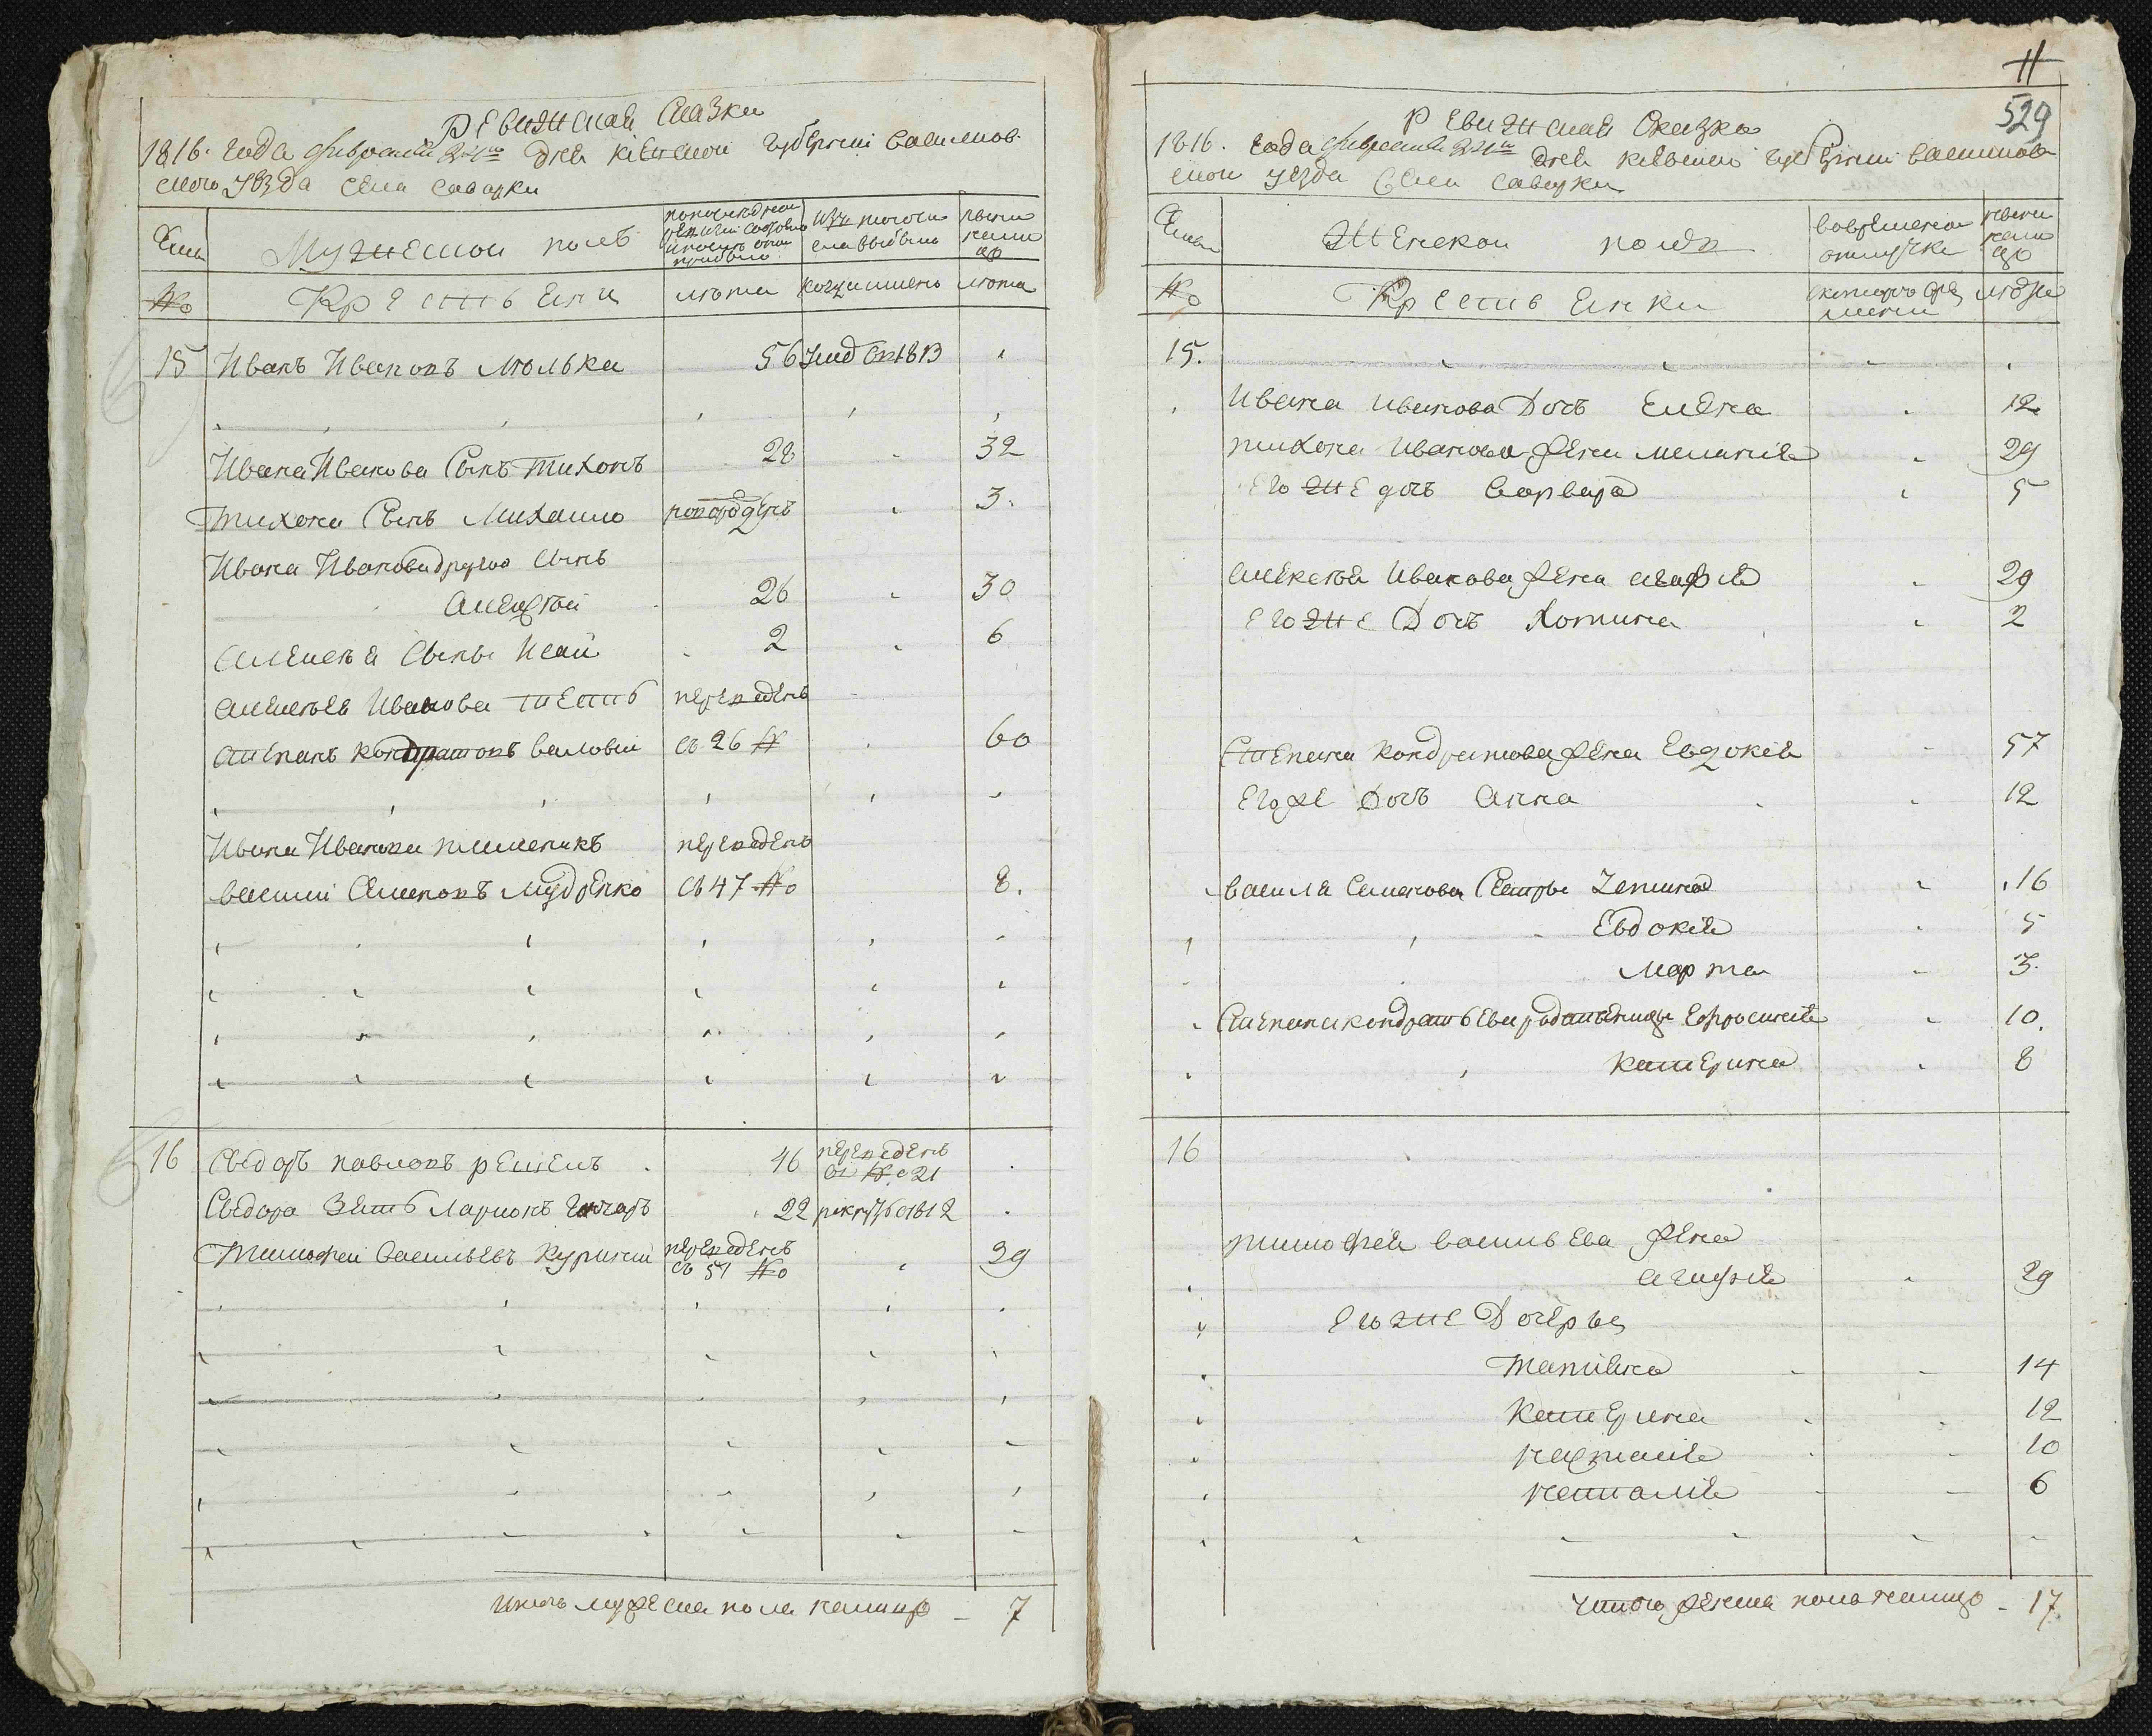 Ревижская Сказка
1816. года февраля 24го дня кіевской губерніи василков
ского уезда села саварки
Семьи
Мужеской полъ
по последней ревизіи состояло и после оной прибыло
изъ того числа выбыло
ныне на лицо
№
Крестьяни
лета
когда имено
лета
15 Иванъ Ивановъ Люлька 56 умеръ 1813
Ивана Иванова Сынъ Тихонъ 28 32
Тихона Сынъ Михайло новорожденъ 3.
Ивана Иванова другой Сынъ
Алексѣй 26 30
Алексѣя Сынъ Исай 2 6
Алексѣя Иванова тесть переведенъ
Степанъ Кондратовъ съ 26 № 60
Ивана Иванова племеникъ переведенъ
василий Семеновъ Мудренко съ 47 № 8.
16 Сыдоръ павловъ 46 переведенъ
№ 21
Сыдора Зять Ларионъ Гончаръ 22 рекрутъ 1812
Тимофей Васильевъ переведенъ 39
съ 51 №
Итого мужеска пола налицо – 7
11
529
Ревижская Сказка
1816. года февраля 24го дня кіевской губерніи василков
ской уезда села саварки
Семьи
Женской полъ
во временой отлучке
ныне на лицо
№
Крестьянки
с которого времени
лета
15.
Ивана Иванова Дочъ Елена 12
тихона Иванова жена меланія 29
его же дочъ Варвара 5
алексѣя Иванова жена агафія 29
его же Дочъ Хотина 2
Степана Кондратова жена Евдокія 57
Его же Дочъ Анна 12
василя Семенова Сестры 16
Евдокія 5
Марта 3.
Степана кондратьева Ефросинія 10.
Катерина 8
16
тимофея васильева жена
агафія 29
его же Дочеры
Татіяна 14
Катерина 12
10
наталія 6
Итого женска пола налицо – 17